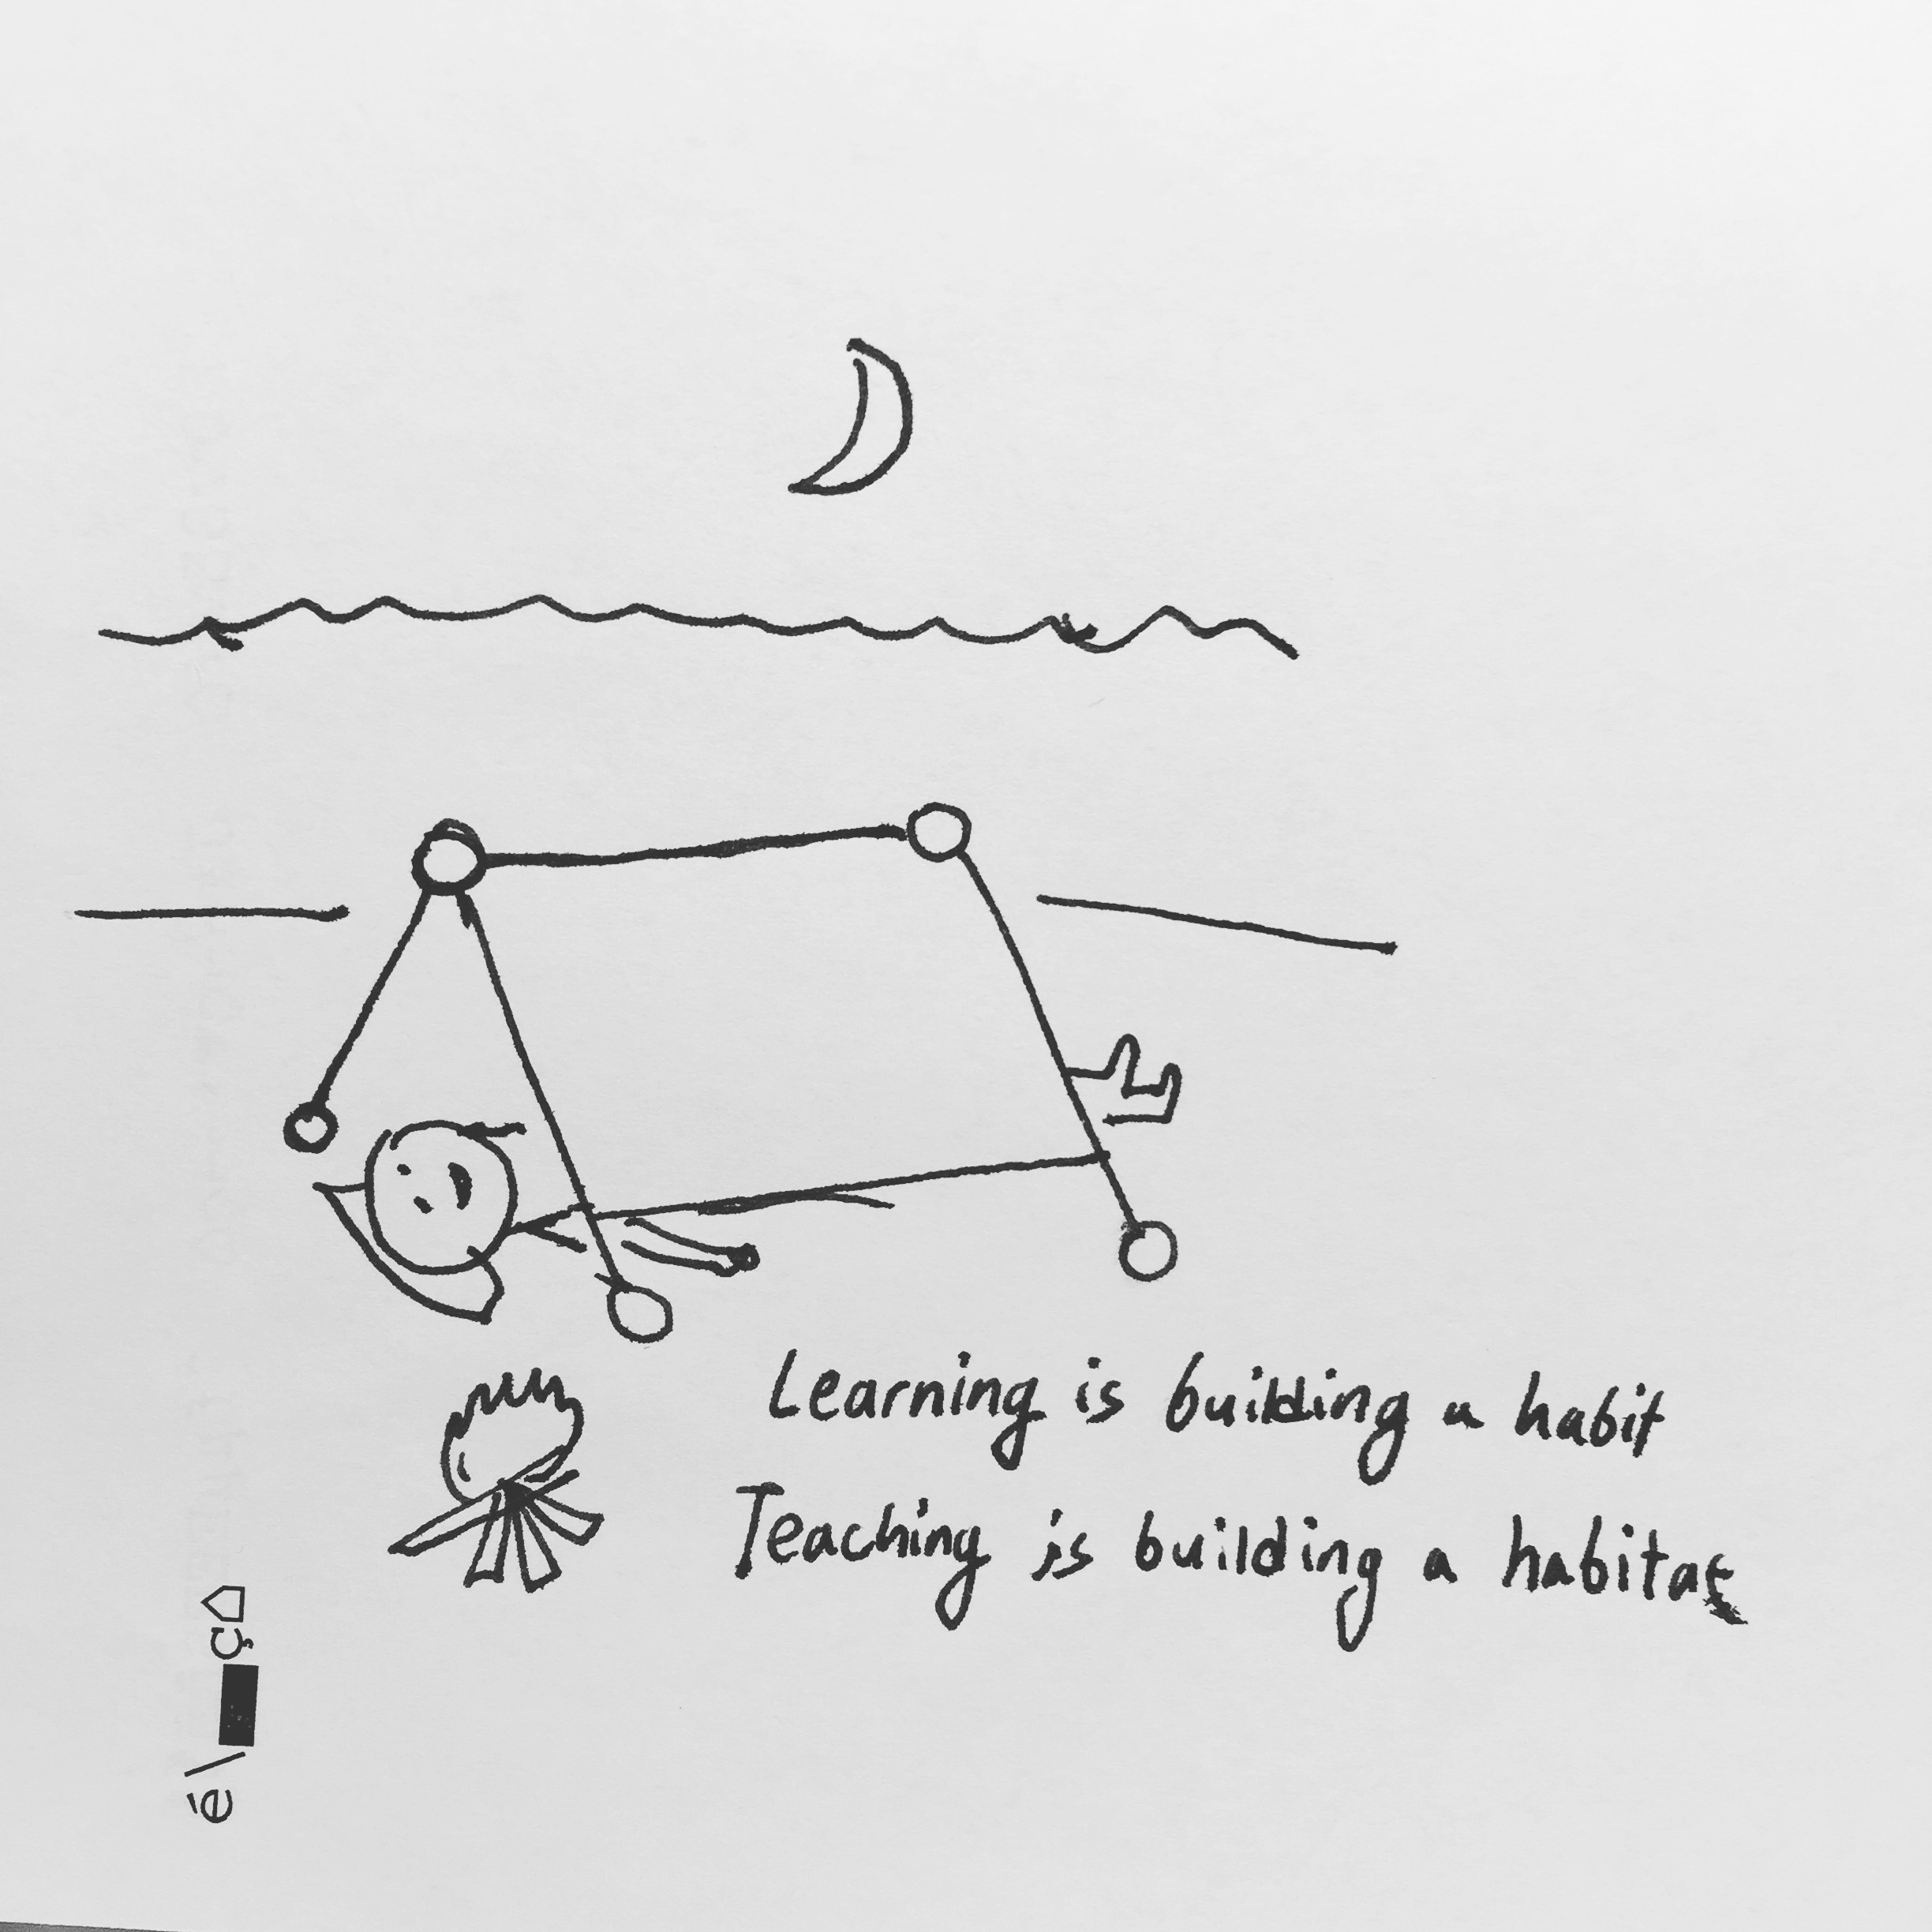 Learning is building a habit
Teaching is building a habitat